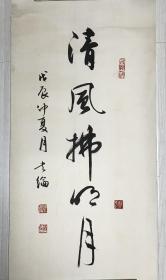 清風拂明月
戊辰仲夏月 老倫